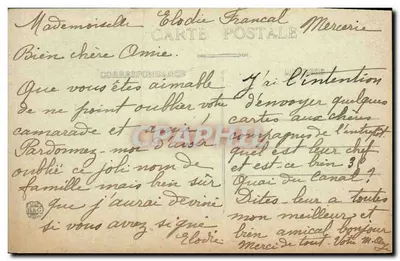 Mademoiselle Elodie Francal Mercerie
CARTE POSTALE
Bien chère Amie.
CORRESPONDANCE
Que vous êtes aimable
de ne point oublier votre
camarade et
Pardonnez-moi d'avoir
oublié ce joli nom de
famille mais bien sûr
que j'aurai deviné
si vous avez signé
Elodie
J'ai l'intention
d'envoyer quelques
cartes aux chères
compagnes de
quel est leur chef
et est-ce bien 3
Quai du Canal ?
Dites-leur à toutes
mon meilleur et
bien amical bonjour
Merci de tout. Votre